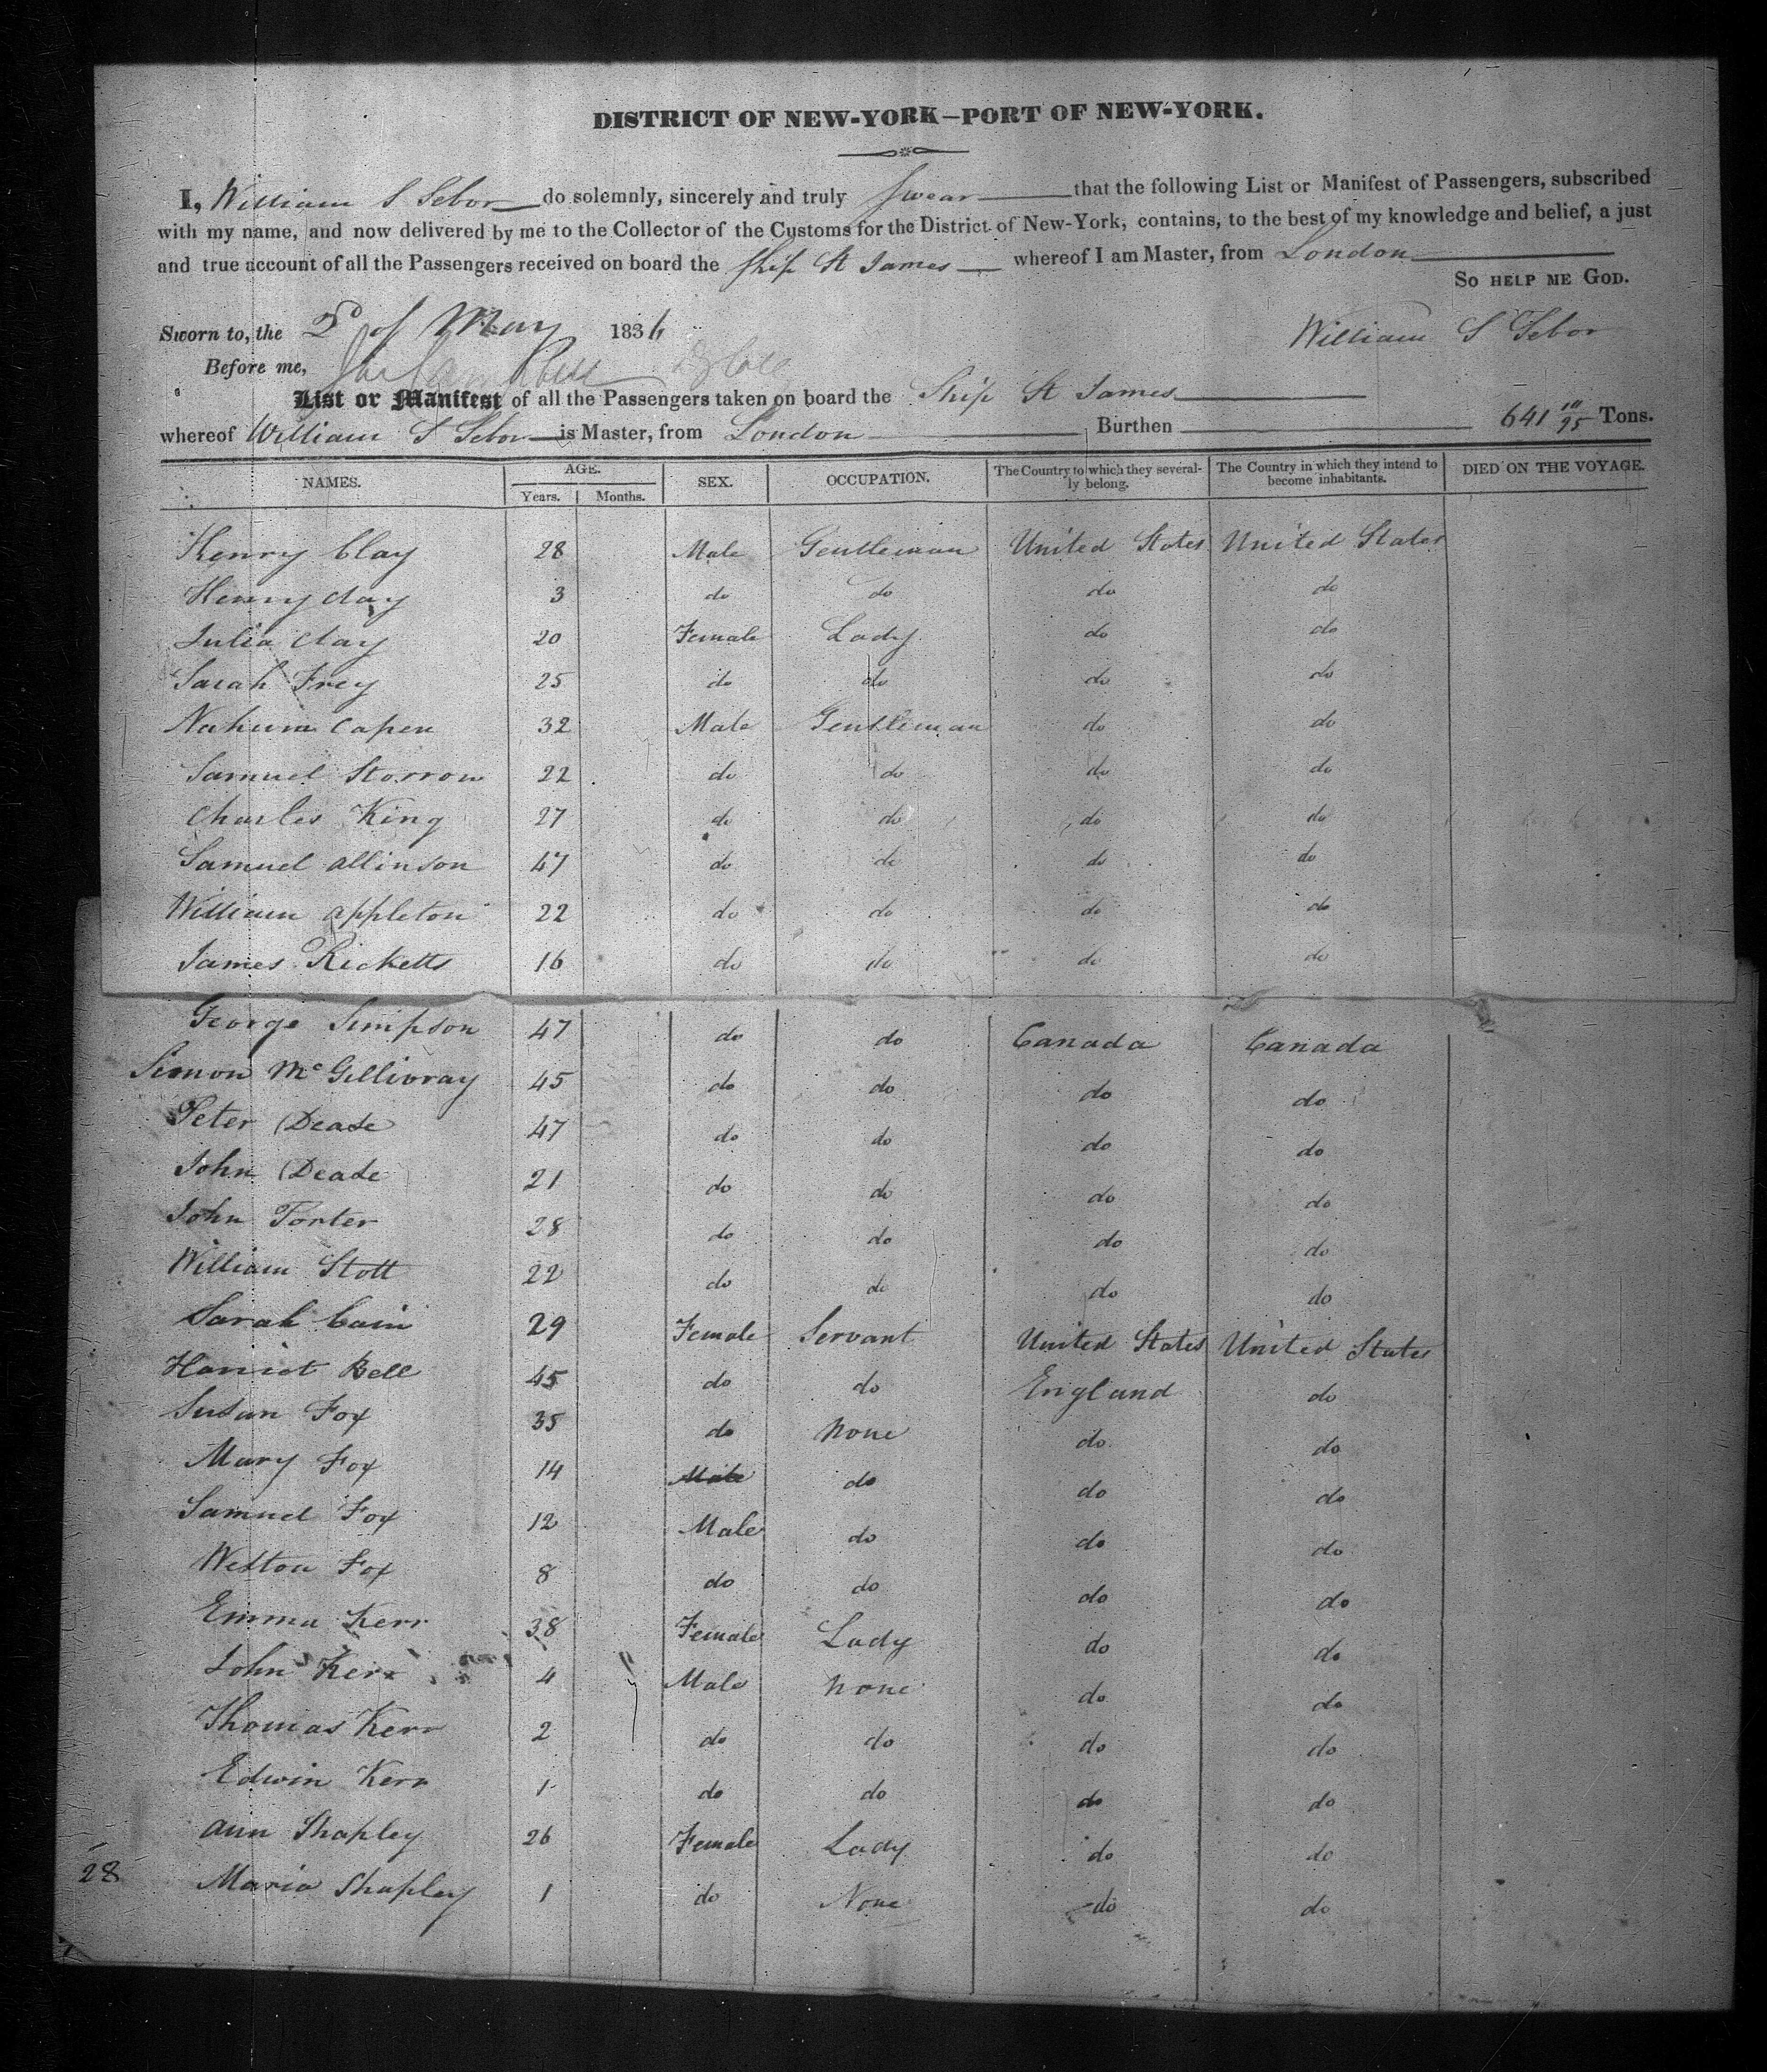 DISTRICT OF NEW-YORK—PORT OF NEW-YORK.
I, William S Sebor do solemnly, sincerely and truly swear that the following List or Manifest of Passengers, subscribed
with my name, and now delivered by me to the Collector of the Customs for the District of New-York, contains, to the best of my knowledge and belief, a just
and true account of all the Passengers received on board the Ship St James whereof I am Master, from London
So help me God.
Sworn to, the 2d of May 1836 William S Sebor
Before me,
List or Manifest of all the Passengers taken on board the Ship St James
whereof William S Sebor is Master, from London Burthen 641 10/95 Tons.
NAMES. AGE. Years. Months. SEX. OCCUPATION. The Country to which they severally belong. The Country in which they intend to become inhabitants. DIED ON THE VOYAGE.
Henry Clay 28 Male Gentleman United States United States
Henry Clay 3 do do do do
Julia Clay 20 Female Lady do do
Sarah Frey 25 do do do do
Nahum Capen 32 Male Gentleman do do
Samuel Storrow 22 do do do do
Charles King 27 do do do do
Samuel Allinson 47 do do do do
William Appleton 22 do do do do
James Ricketts 16 do do do do
George Simpson 47 do do Canada Canada
Simon McGillivray 45 do do do do
Peter Dease 47 do do do do
John Dease 21 do do do do
John Porter 28 do do do do
William Stott 22 do do do do
Sarah Cain 29 Female Servant United States United States
Harriot Bell 45 do do England do
Susan Fox 35 do None do do
Mary Fox 14 Male do do do
Samuel Fox 12 Male do do do
Weston Fox 8 do do do do
Emma Kerr 38 Female Lady do do
John Kerr 4 Male None do do
Thomas Kerr 2 do do do do
Edwin Kerr 1 do do do do
Ann Shapley 26 Female Lady do do
28 Maria Shapley 1 do None do do